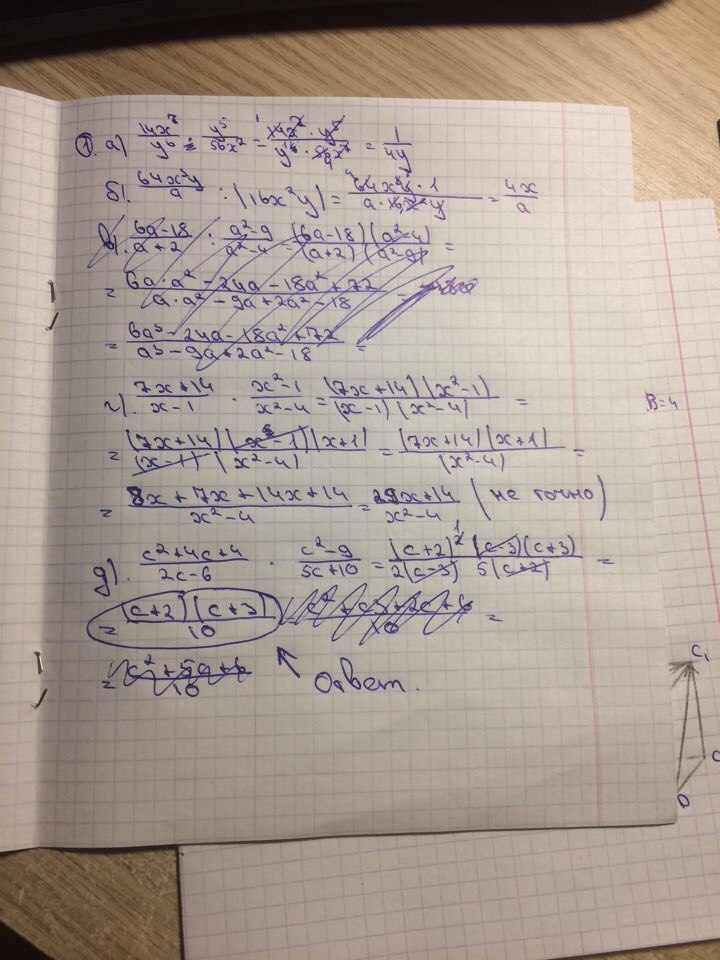 1. а) 14x⁷/y⁶ · y⁵/56x² = 14x² · y⁵/y⁶ · 56x² = 1/4y
б). 64x³y/a : (16x²y) = 64x³y · 1/a · 16x²y = 4x/a
в). 6a-18/a+2 : a²-9/a²-4 = (6a-18)(a²-4)/(a+2)(a²-9) =
= 6a·a² - 24a - 18a² + 72/a·a² - 9a + 2a² - 18 =
= 6a³ - 24a - 18a² + 72/a³ - 9a + 2a² - 18 =
г). 7x+14/x-1 · x²-1/x²-4 = (7x+14)(x²-1)/(x-1)(x²-4) =
B=4
= (7x+14)(x-1)(x+1)/(x-1)(x²-4) = (7x+14)(x+1)/(x²-4) =
= 8x + 7x + 14x + 14/x²-4 = 29x+14/x²-4 (не точно)
д). c²+4c+4/2c-6 · c²-9/5c+10 = (c+2)² (c-3)(c+3)/2(c-3) 5(c+2) =
= (c+2)(c+3)/10 =
= c²+5c+6/10
ответ.
C₁
C
D